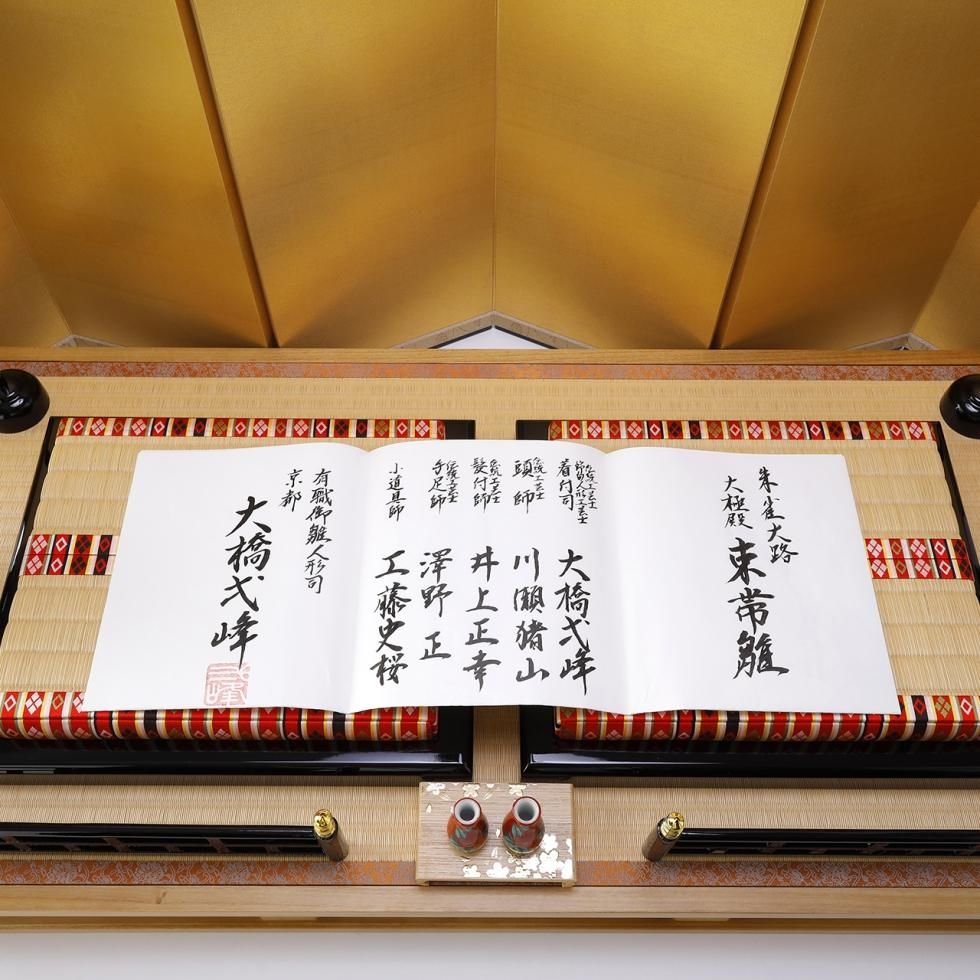 朱雀大路
大極殿
束帯雛
伝統工芸士
節句人形工芸士
着付司 大橋弌峰
伝統工芸士
頭師 川瀬猪山
伝統工芸士
髪付師 井上正幸
伝統工芸士
手足師 澤野正
小道具師 工藤史桜
有職御雛人形司
京都
大橋弌峰
弌峰